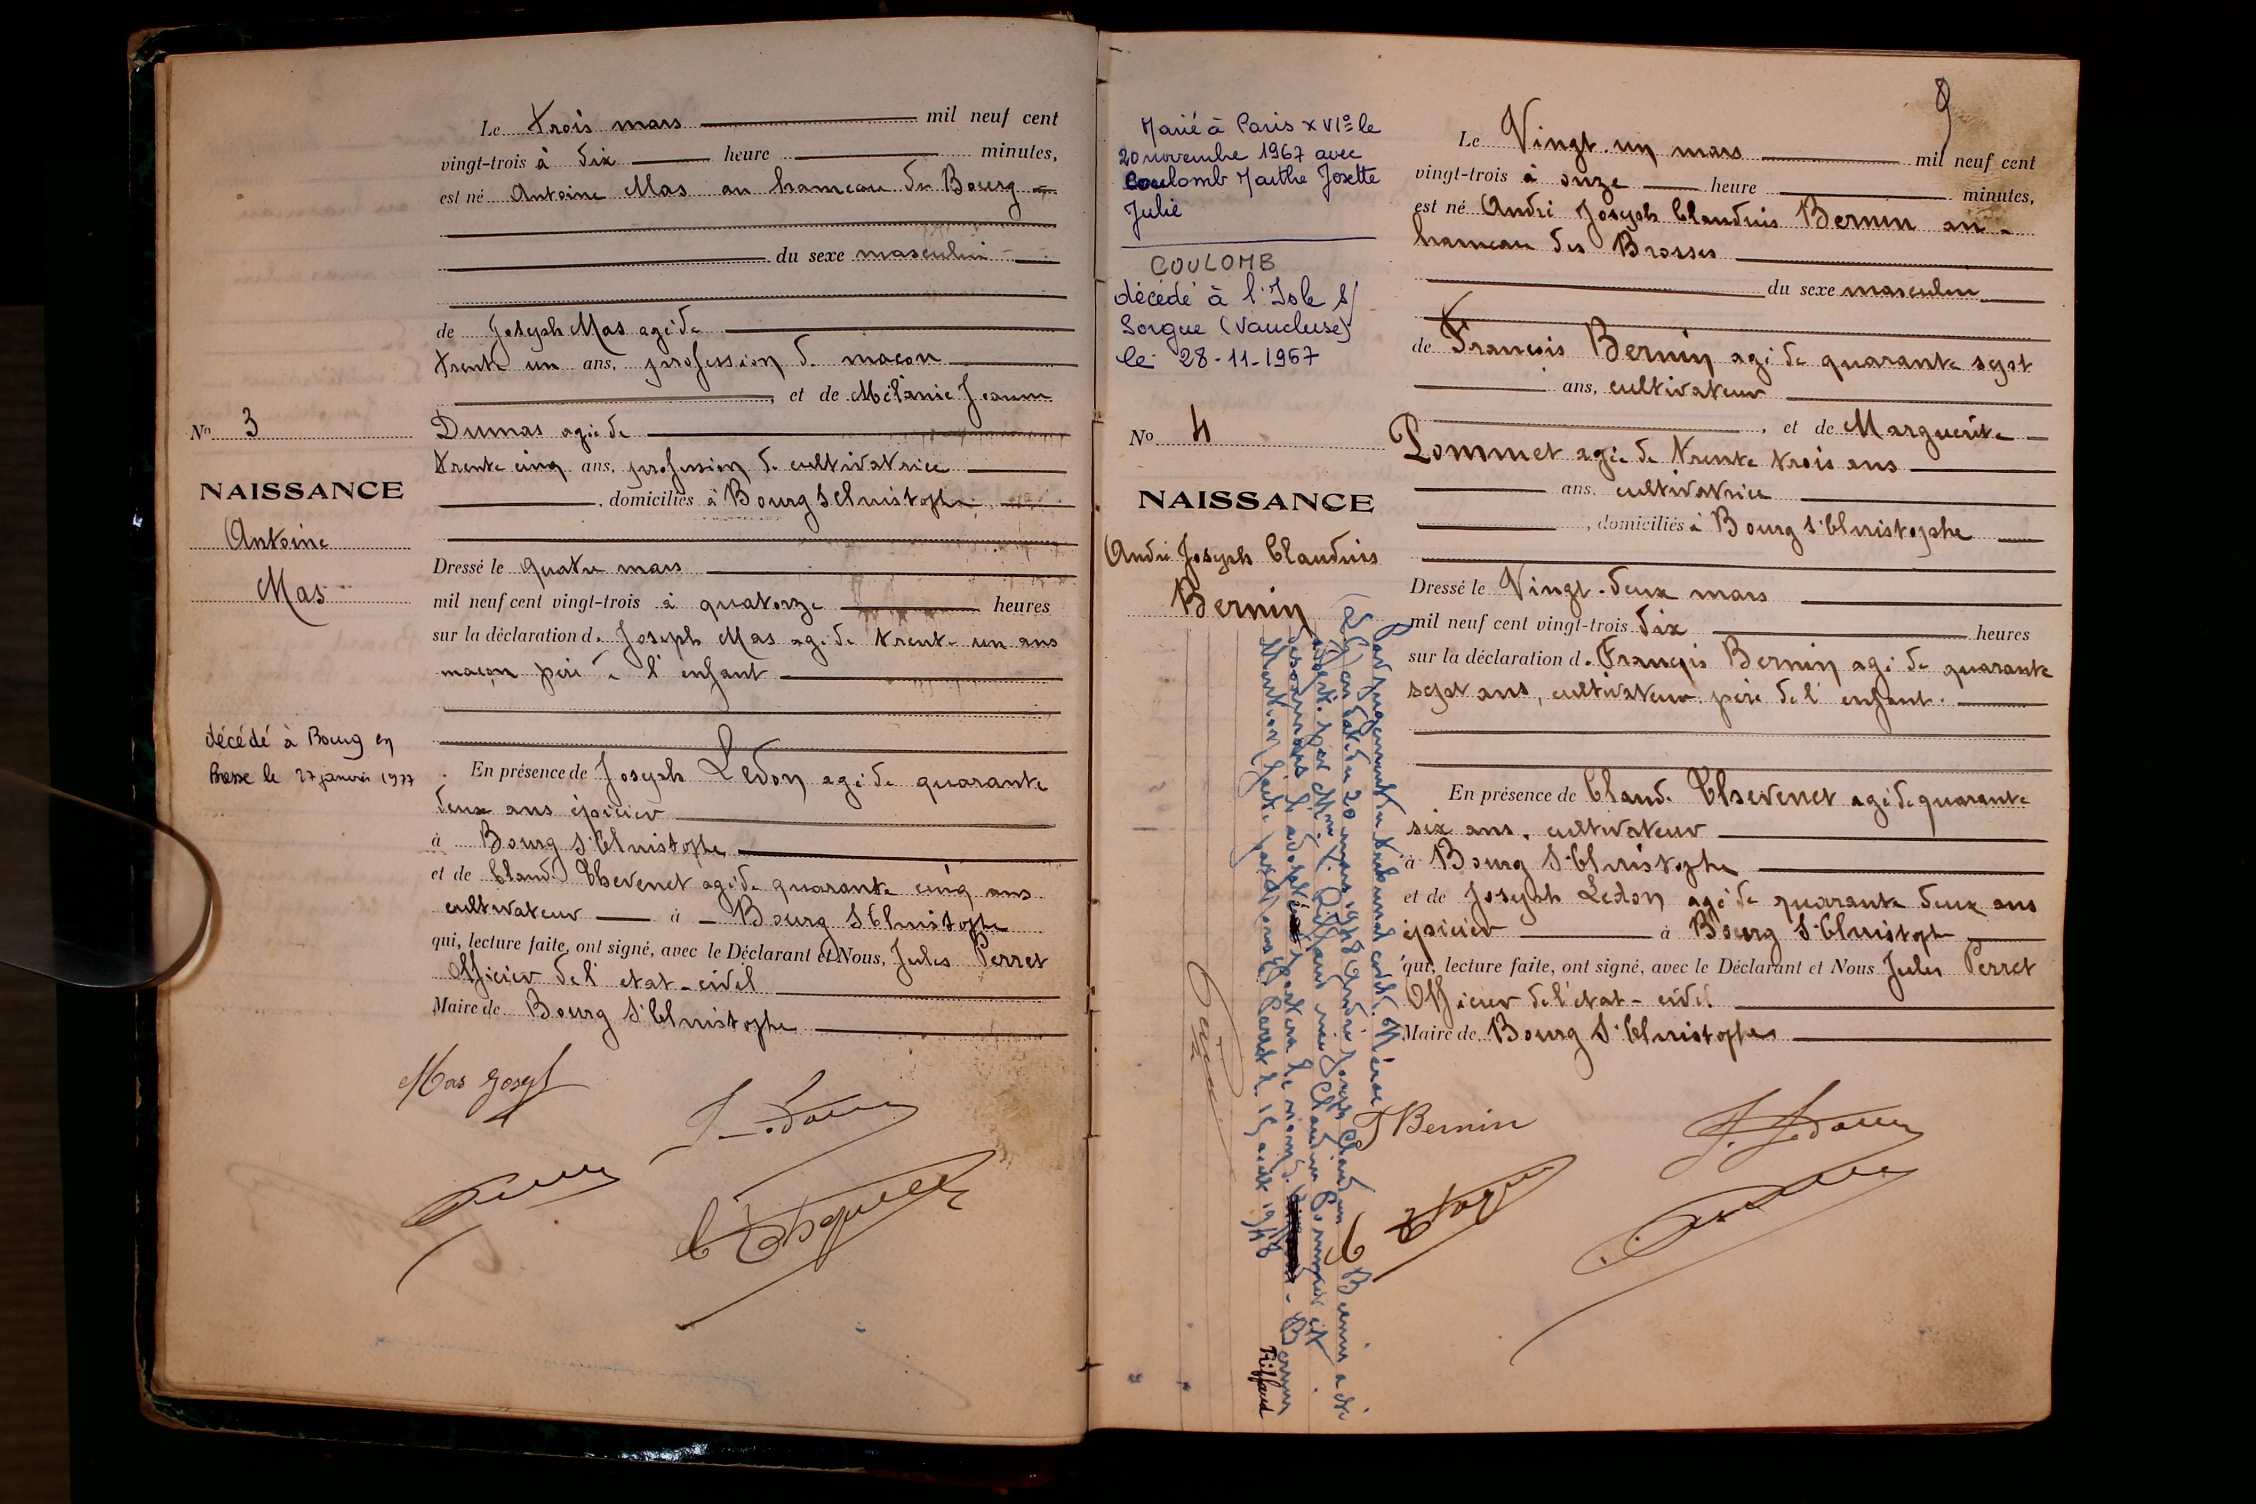 Le trois mars mil neuf cent
vingt-trois à dix heure minutes,
est né Antoine Mas au hameau du Bourg
du sexe masculin
de Joseph Mas agé de
trente un ans, profession de maçon
, et de Mélanie Jeanne
Dumas agée de
trente cinq ans, profession de cultivatrice
, domiciliés à Bourg St Christophe
Dressé le quatre mars
mil neuf cent vingt-trois à quatorze heures
sur la déclaration de Joseph Mas agé de trente un ans
maçon père de l'enfant
En présence de Joseph Ledon agé de quarante
deux ans épicier
à Bourg St Christophe
et de Claude Thevenet agé de quarante cinq ans
cultivateur à Bourg St Christophe
qui, lecture faite, ont signé, avec le Déclarant et Nous, Jules Perret
Officier de l'etat-civil
Maire de Bourg St Christophe
Mas Joseph
No 3
NAISSANCE
Antoine
Mas
décédé à Bourg en
Bresse le 27 janvier 1977
9
Marié à Paris XVIe le
20 novembre 1967 avec
Coulomb Marthe Josette
Julie
COULOMB
décédé à l'Isle S/
Sorgue (Vaucluse)
le 28-11-1967
No 4
NAISSANCE
André Joseph Claudius
Bernin
Par jugement du tribunal civil de
en date du 20 mars 1948 André Joseph Claudius Bernin a été
adopté par Mme Riffaud née Claudine Pommet et
désormais l'adopté portera le nom de Bernin
Riffaud
Mention faite par Nous 15 août 1948
Le Vingt un mars mil neuf cent
vingt-trois à onze heure minutes,
est né André Joseph Claudius Bernin au
hameau des Brosses
du sexe masculin
de François Bernin agé de quarante sept
ans, cultivateur
, et de Marguerite
Pommet agée de trente trois ans
ans, cultivatrice
, domiciliés à Bourg St Christophe
Dressé le Vingt-deux mars
mil neuf cent vingt-trois dix heures
sur la déclaration de François Bernin agé de quarante
sept ans, cultivateur père de l'enfant
En présence de Claude Thevenet agé de quarante
six ans, cultivateur
à Bourg St Christophe
et de Joseph Ledon agé de quarante deux ans
épicier à Bourg St Christophe
qui, lecture faite, ont signé, avec le Déclarant et Nous Jules Perret
Officier de l'etat-civil
Maire de Bourg St Christophe
F Bernin